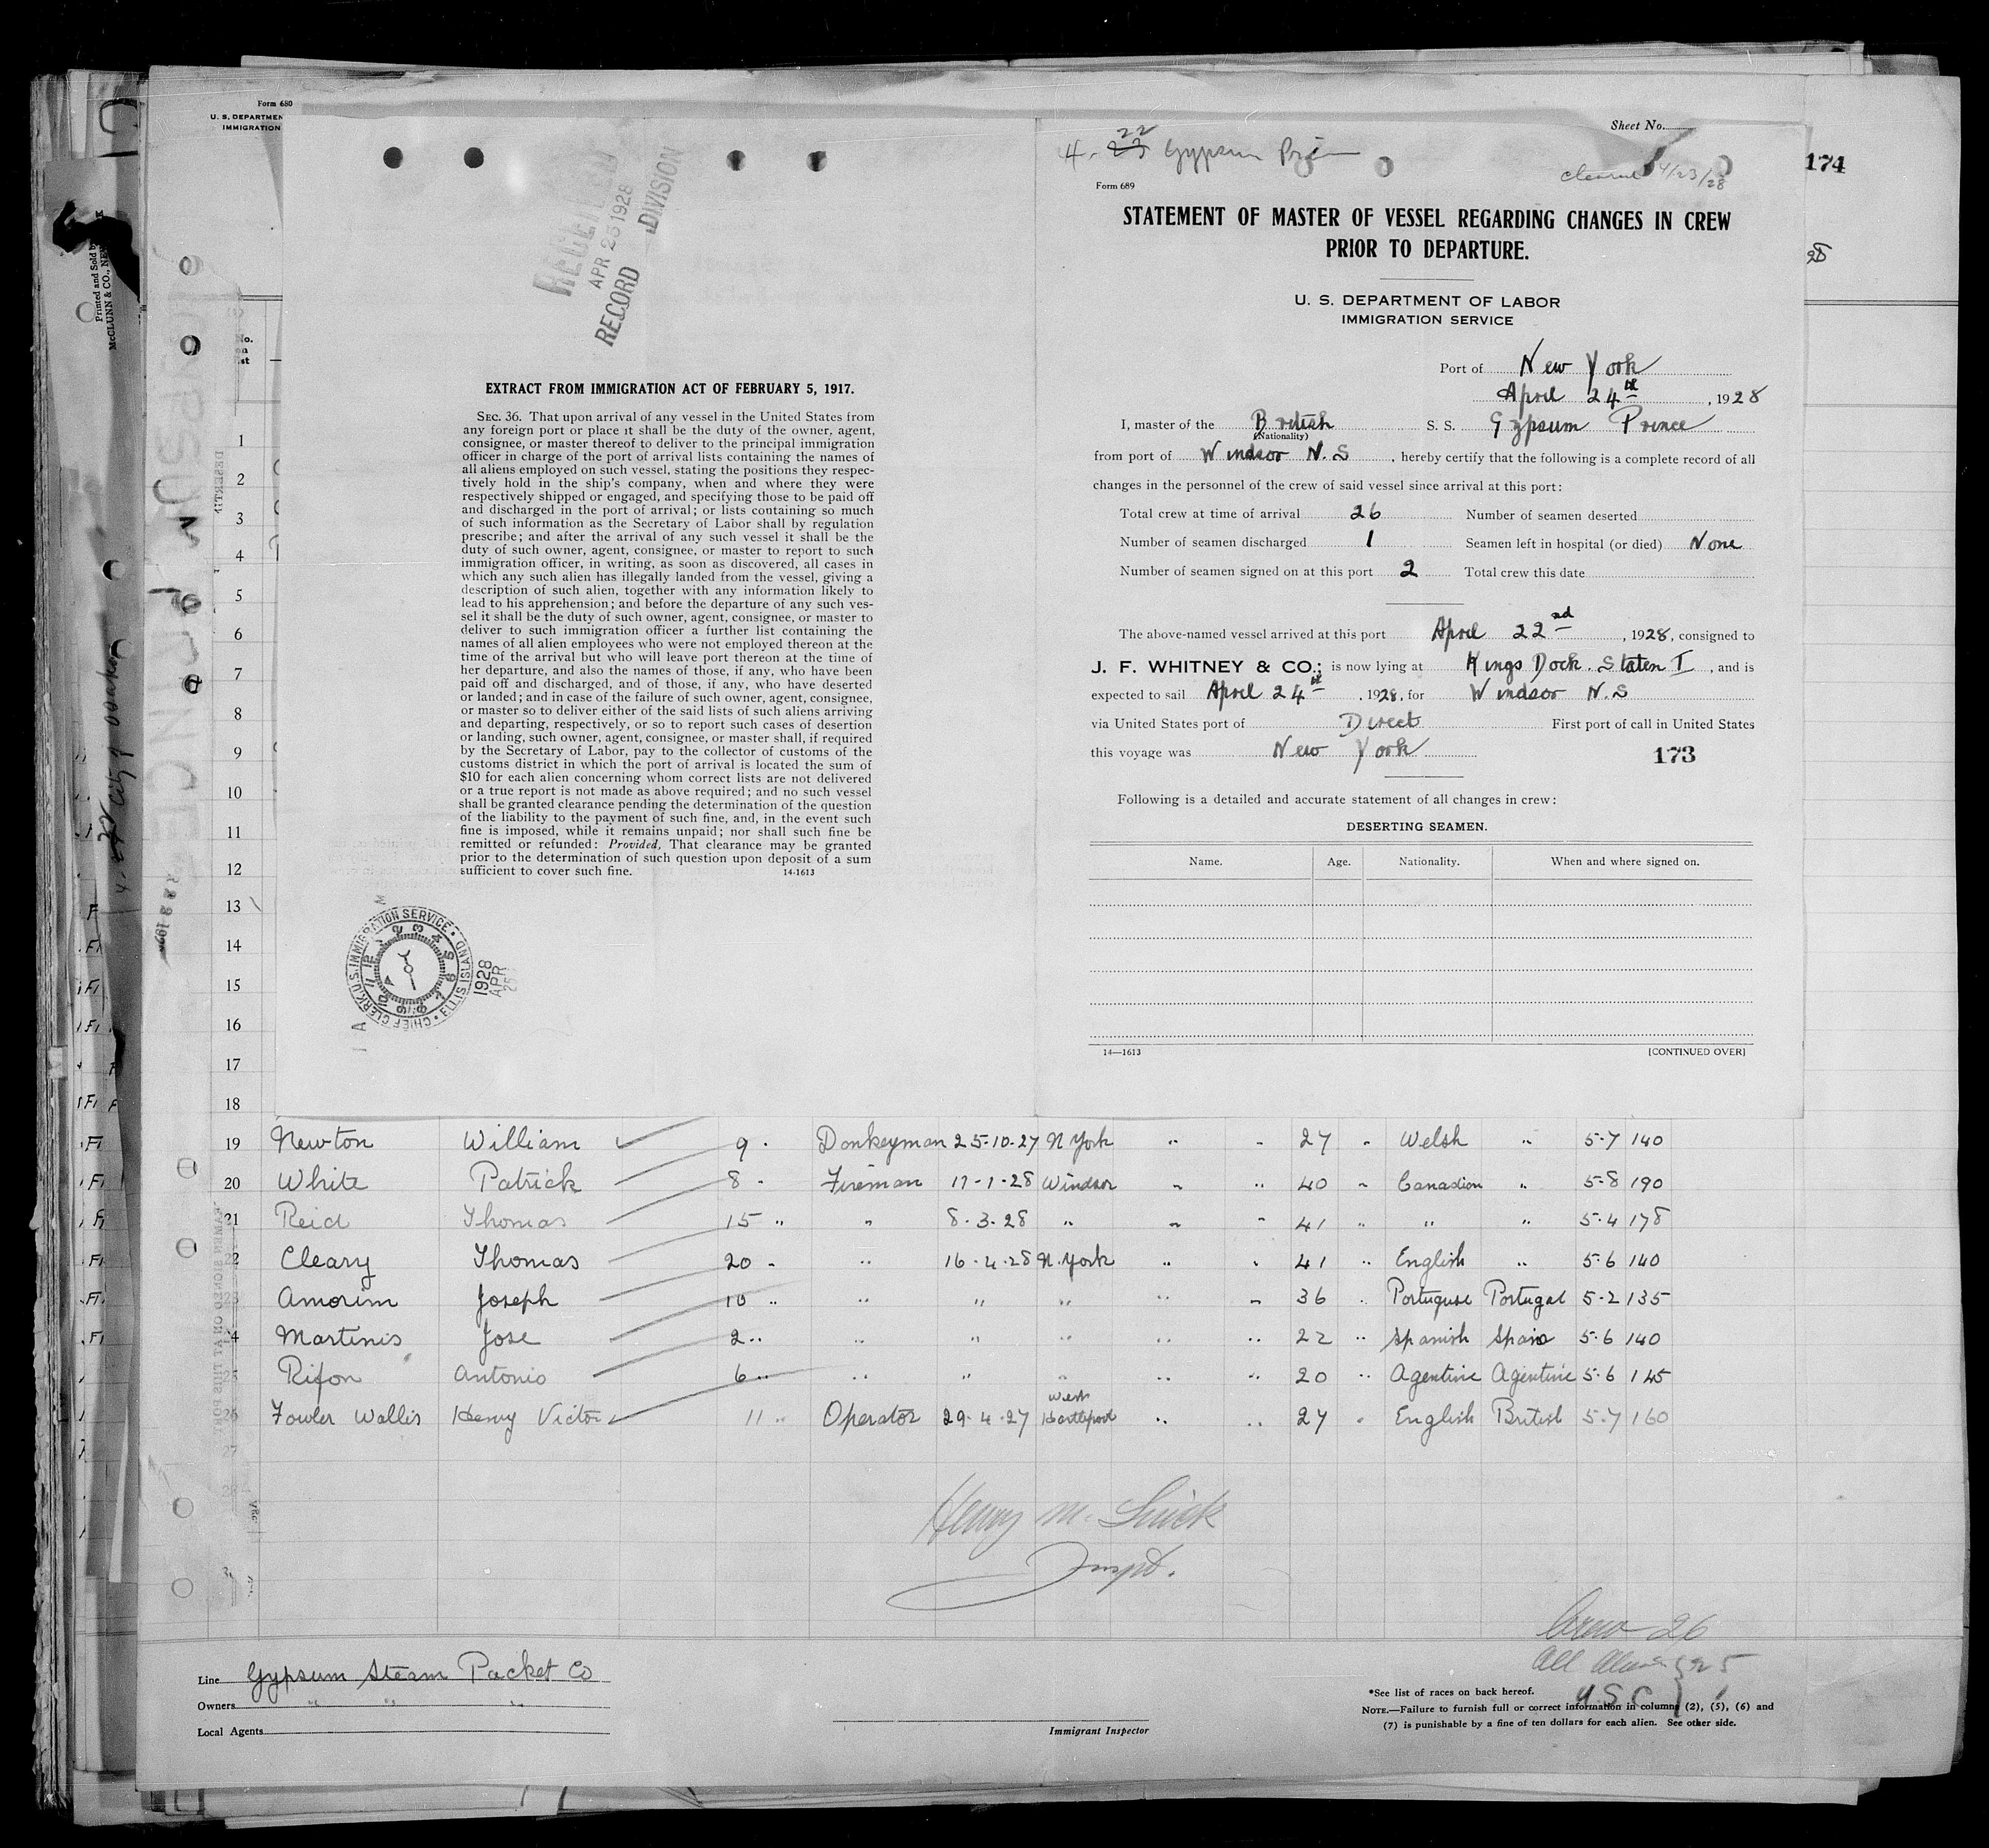 Form 680
U. S. DEPARTMEN
IMMIGRATION
Sheet No.
174
Printed and Sold by
McCLUNN & CO., NEW
RECEIVED
APR 25 1928
RECORD DIVISION
EXTRACT FROM IMMIGRATION ACT OF FEBRUARY 5, 1917.
SEC. 36. That upon arrival of any vessel in the United States from
any foreign port or place it shall be the duty of the owner, agent,
consignee, or master thereof to deliver to the principal immigration
officer in charge of the port of arrival lists containing the names of
all aliens employed on such vessel, stating the positions they respec-
tively hold in the ship's company, when and where they were
respectively shipped or engaged, and specifying those to be paid off
and discharged in the port of arrival; or lists containing so much
of such information as the Secretary of Labor shall by regulation
prescribe; and after the arrival of any such vessel it shall be the
duty of such owner, agent, consignee, or master to report to such
immigration officer, in writing, as soon as discovered, all cases in
which any such alien has illegally landed from the vessel, giving a
description of such alien, together with any information likely to
lead to his apprehension; and before the departure of any such ves-
sel it shall be the duty of such owner, agent, consignee, or master to
deliver to such immigration officer a further list containing the
names of all alien employees who were not employed thereon at the
time of the arrival but who will leave port thereon at the time of
her departure, and also the names of those, if any, who have been
paid off and discharged, and of those, if any, who have deserted
or landed; and in case of the failure of such owner, agent, consignee,
or master so to deliver either of the said lists of such aliens arriving
and departing, respectively, or so to report such cases of desertion
or landing, such owner, agent, consignee, or master shall, if required
by the Secretary of Labor, pay to the collector of customs of the
customs district in which the port of arrival is located the sum of
$10 for each alien concerning whom correct lists are not delivered
or a true report is not made as above required; and no such vessel
shall be granted clearance pending the determination of the question
of the liability to the payment of such fine, and, in the event such
fine is imposed, while it remains unpaid; nor shall such fine be
remitted or refunded: Provided, That clearance may be granted
prior to the determination of such question upon deposit of a sum
sufficient to cover such fine. 14-1613
CHIEF CLERK U.S. IMMIGRATION SERVICE ELLIS ISLAND
1928 APR 25
4. 22 23 Gypsum Prin
cleared 4/23/28
Form 689
STATEMENT OF MASTER OF VESSEL REGARDING CHANGES IN CREW
PRIOR TO DEPARTURE.
U. S. DEPARTMENT OF LABOR
IMMIGRATION SERVICE
Port of New York
April 24th, 1928
I, master of the British S. S. Gypsum Prince
(Nationality)
from port of Windsor N.S, hereby certify that the following is a complete record of all
changes in the personnel of the crew of said vessel since arrival at this port:
Total crew at time of arrival 26 Number of seamen deserted
Number of seamen discharged 1 Seamen left in hospital (or died) None
Number of seamen signed on at this port 2 Total crew this date
The above-named vessel arrived at this port April 22nd, 1928, consigned to
J. F. WHITNEY & CO.; is now lying at Kings Dock. Staten I, and is
expected to sail April 24th, 1928, for Windsor N.S
via United States port of Direct First port of call in United States
this voyage was New York
173
Following is a detailed and accurate statement of all changes in crew:
DESERTING SEAMEN.
Name. Age. Nationality. When and where signed on.
14—1613 [CONTINUED OVER]
No. on list
1
2
3
4
5
6
7
8
9
10
11
12
13
14
15
16
17
18
19 Newton William 9 " Donkeyman 25-10-27 N York " " 27 " Welsh " 5-7 140
20 White Patrick 8 " Fireman 17-1-28 Windsor " " 40 " Canadian " 5-8 190
21 Reid Thomas 15 " " 8-3-28 " " " 41 " " " 5-4 178
22 Cleary Thomas 20 " " 16-4-28 N.York " " 41 " English " 5-6 140
23 Amorim Joseph 10 " " " " " " 36 " Portuguse Portugal 5-2 135
24 Martinis Jose 2 " " " " " " 22 " Spanish Spain 5-6 140
25 Rifon Antonio 6 " " " " " " 20 " Agentine Agentine 5-6 145
26 Fowler Wallis Henry Victor 11 " Operator 29-4-27 West Hartlepool " " 27 " English British 5-7 160
27
Henry M.
Inspt.
Crew 26
All Aliens 25
U.S.C. 1
Line Gypsum Steam Packet Co
Owners " " "
Local Agents
Immigrant Inspector
*See list of races on back hereof.
NOTE.—Failure to furnish full or correct information in columns (2), (5), (6) and
(7) is punishable by a fine of ten dollars for each alien. See other side.